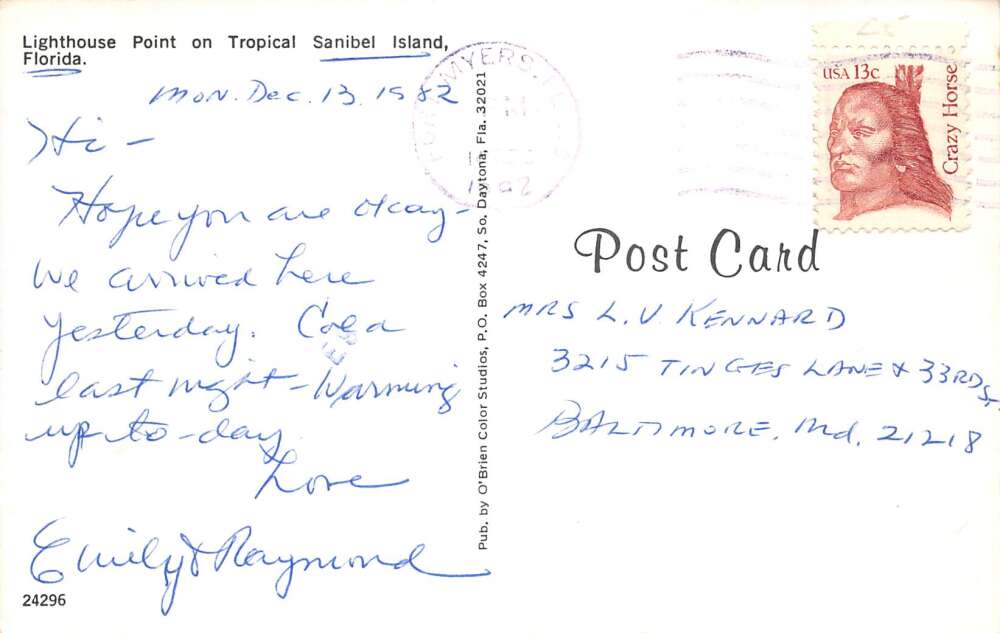 Lighthouse Point on Tropical Sanibel Island,
Florida.
Mon. Dec. 13, 1982
Hi -
Hope you are okay -
We arrived here
yesterday. Cold
last night - Warming
up to-day.
Love
Emily & Raymond
24296
Pub. by O'Brien Color Studios, P.O. Box 4247, So. Daytona, Fla. 32021
MYERS, FL
1982
USA 13c
Crazy Horse
Post Card
MRS L. V. KENNARD
3215 TINGES LANE & 33RD St.
BALTIMORE, Md. 21218